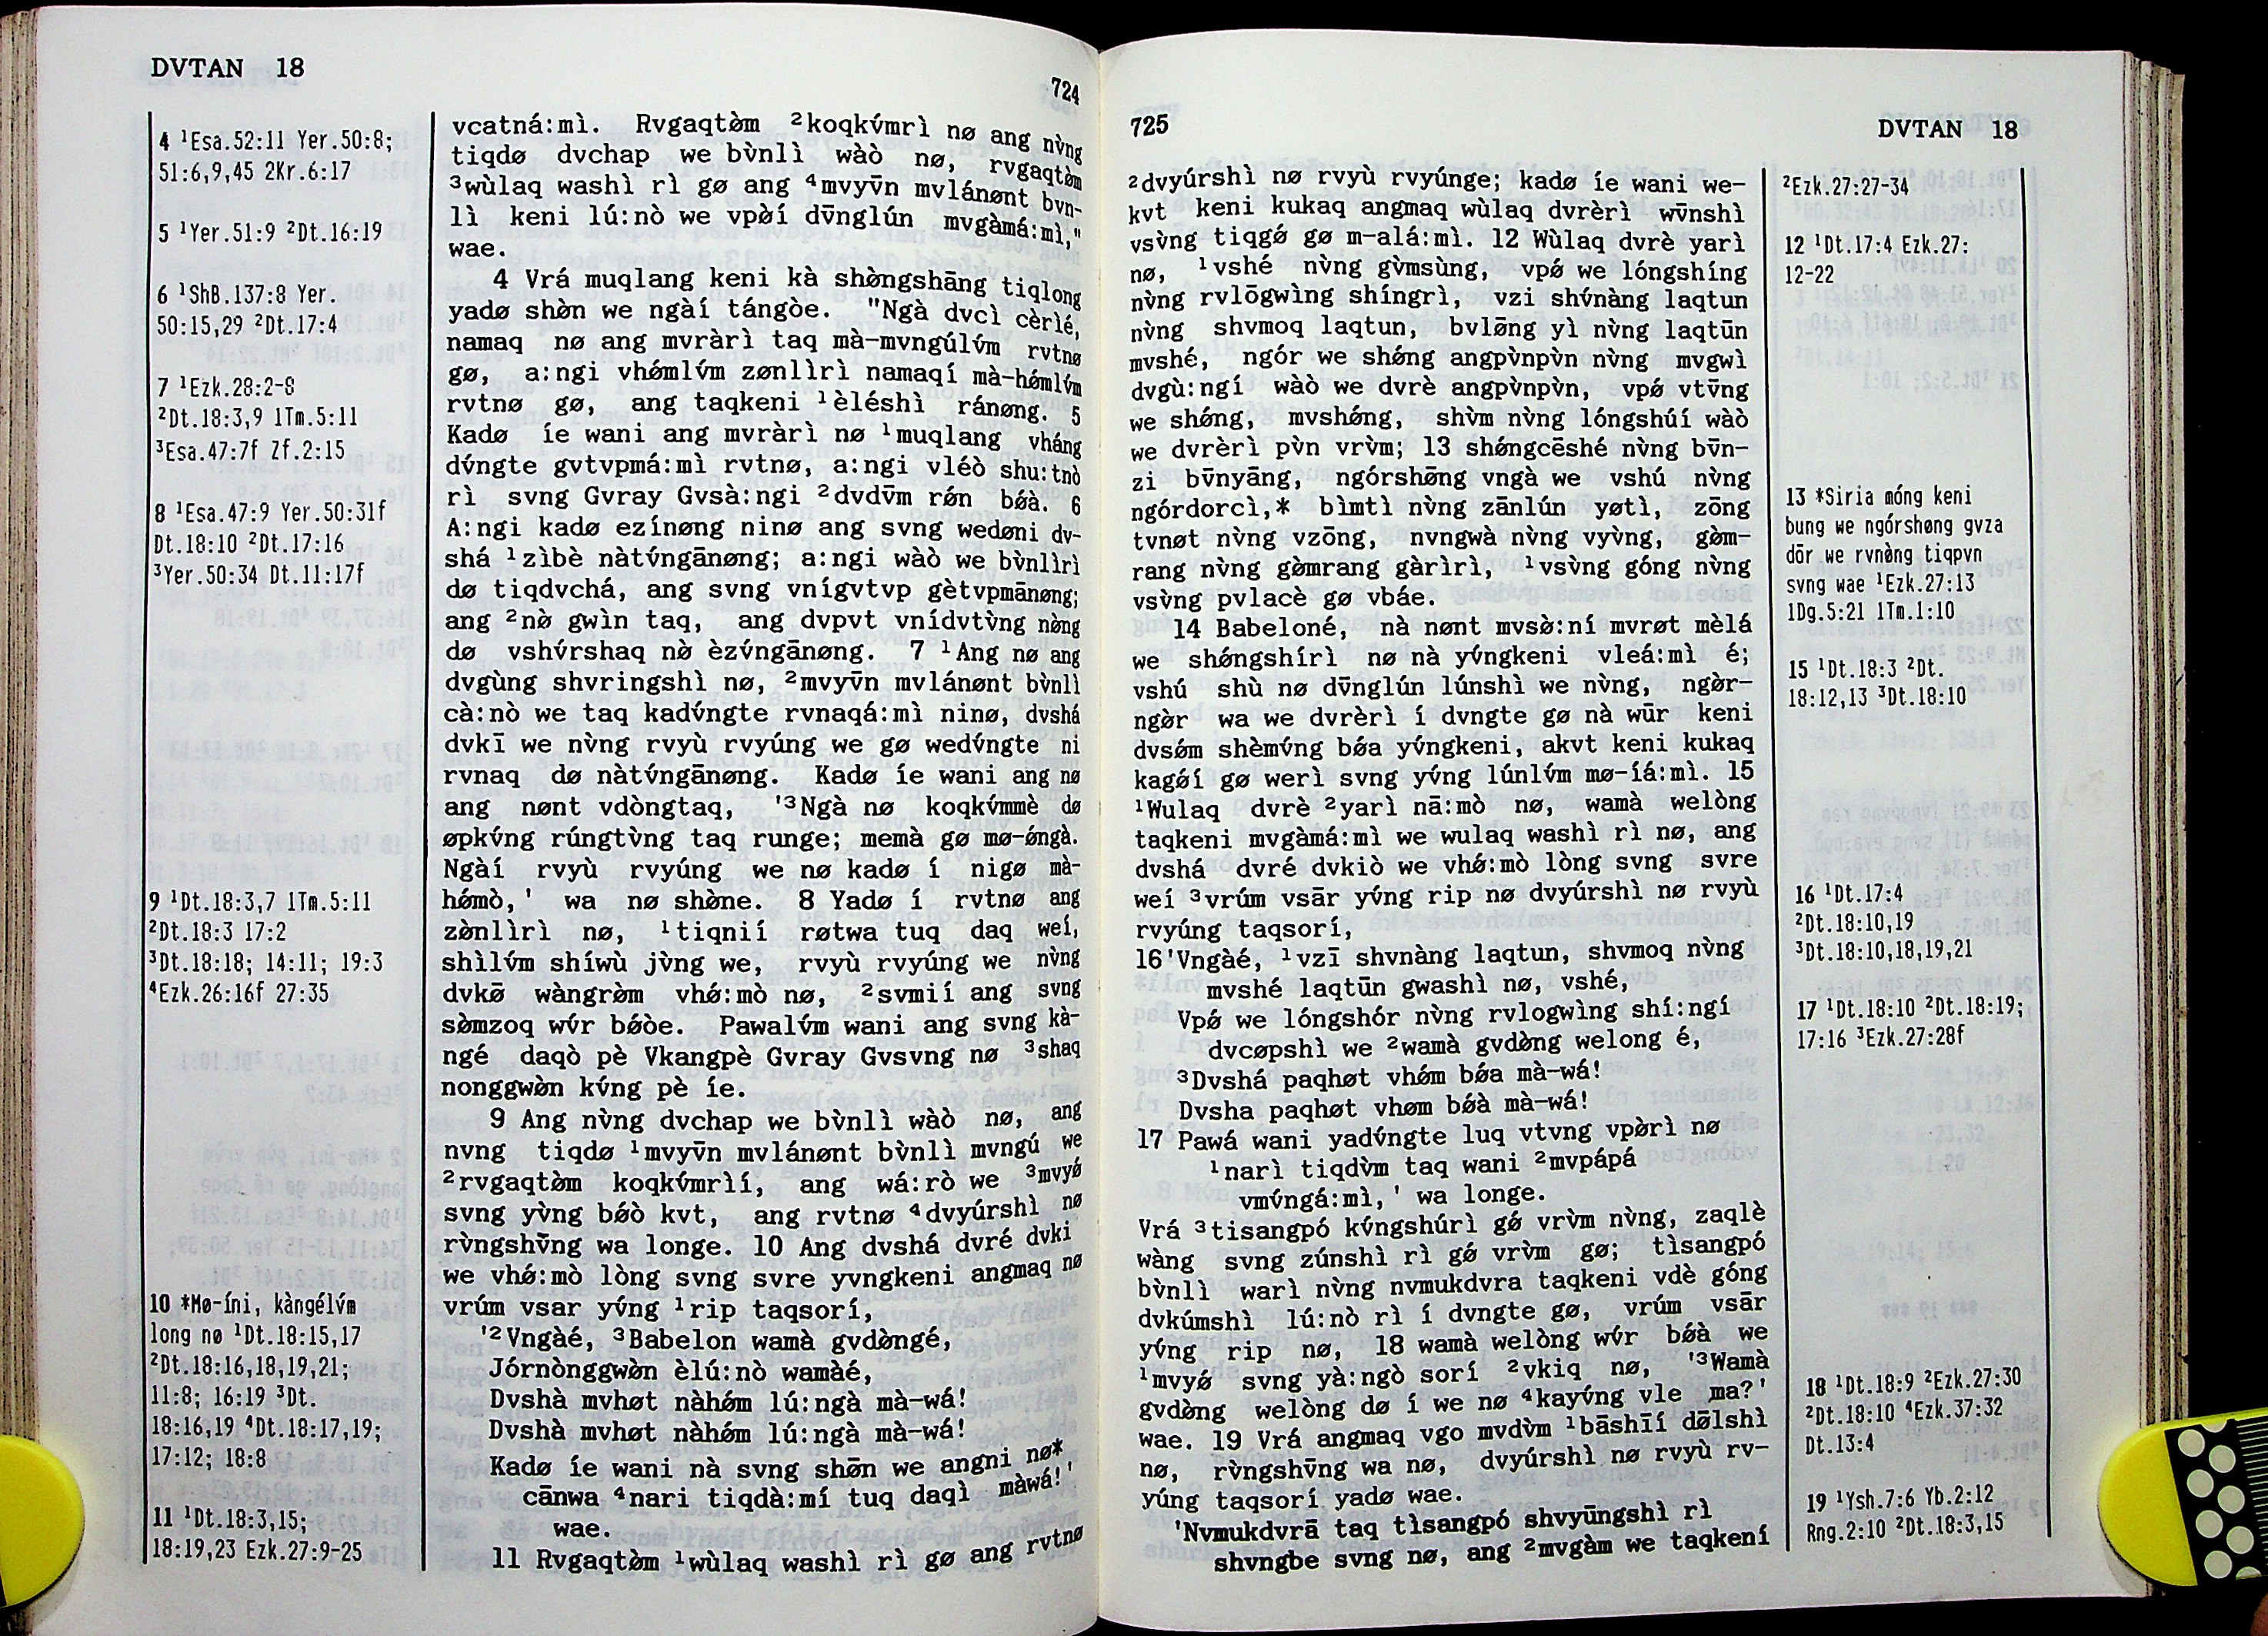 DVTAN 18
724
4 ¹Esa.52:11 Yer.50:8;
51:6,9,45 2Kr.6:17
5 ¹Yer.51:9 ²Dt.16:19
6 ¹ShB.137:8 Yer.
50:15,29 ²Dt.17:4
7 ¹Ezk.28:2-8
²Dt.18:3,9 1Tm.5:11
³Esa.47:7f Zf.2:15
8 ¹Esa.47:9 Yer.50:31f
Dt.18:10 ²Dt.17:16
³Yer.50:34 Dt.11:17f
9 ¹Dt.18:3,7 1Tm.5:11
²Dt.18:3 17:2
³Dt.18:18; 14:11; 19:3
⁴Ezk.26:16f 27:35
10 *Mø-íni, kàngélv́m
long nø ¹Dt.18:15,17
²Dt.18:16,18,19,21;
11:8; 16:19 ³Dt.
18:16,19 ⁴Dt.18:17,19;
17:12; 18:8
11 ¹Dt.18:3,15;
18:19,23 Ezk.27:9-25
vcatná:mì. Rvgaqtø̀m ²koqkv́mrì nø ang nv̀ng
tiqdø dvchap we bv̀nlì wàò nø, rvgaqtø̀m
³wùlaq washì rì gø ang ⁴mvyv̄n mvlánønt bvn-
lì keni lú:nò we vpø̀í dv̄nglún mvgàmá:mì,"
wae.
4 Vrá muqlang keni kà shø̀ngshāng tiqlong
yadø shø̀n we ngàí tángòe. "Ngà dvcì cèrìé,
namaq nø ang mvràrì taq mà-mvngúlv́m rvtnø
gø, a:ngi vhǿmlv́m zønlìrì namaqí mà-hǿmlv́m
rvtnø gø, ang taqkeni ¹èléshì ránøng. 5
Kadø íe wani ang mvràrì nø ¹muqlang vháng
dv́ngte gvtvpmá:mì rvtnø, a:ngi vléò shu:tnò
rì svng Gvray Gvsà:ngi ²dvdv̄m rǿn bǿà. 6
A:ngi kadø ezínøng ninø ang svng wedøni dv-
shá ¹zìbè nàtv́ngānøng; a:ngi wàò we bv̀nlìrì
dø tiqdvchá, ang svng vnígvtvp gètvpmānøng;
ang ²nø̀ gwìn taq, ang dvpvt vnídvtv̀ng nø̀ng
dø vshv́rshaq nø̀ èzv́ngānøng. 7 ¹Ang nø ang
dvgùng shvringshì nø, ²mvyv̄n mvlánønt bv̀nlì
cà:nò we taq kadv́ngte rvnaqá:mì ninø, dvshá
dvkī we nv̀ng rvyù rvyúng we gø wedv́ngte ni
rvnaq dø nàtv́ngānøng. Kadø íe wani ang nø
ang nønt vdòngtaq, '³Ngà nø koqkv́mmè dø
øpkv́ng rúngtv̀ng taq runge; memà gø mø-ǿngà.
Ngàí rvyù rvyúng we nø kadø í nigø mà-
hǿmò,' wa nø shø̀ne. 8 Yadø í rvtnø ang
zø̀nlìrì nø, ¹tiqnií røtwa tuq daq weí,
shìlv́m shíwù jv̀ng we, rvyù rvyúng we nv̀ng
dvkø̄ wàngrø̀m vhǿ:mò nø, ²svmií ang svng
sø̀mzoq wv́r bǿòe. Pawalv́m wani ang svng kà-
ngé daqò pè Vkangpè Gvray Gvsvng nø ³shaq
nonggwø̀n kv́ng pè íe.
9 Ang nv̀ng dvchap we bv̀nlì wàò nø, ang
nvng tiqdø ¹mvyv̄n mvlánønt bv̀nlì mvngú we
²rvgaqtø̀m koqkv́mrìí, ang wá:rò we ³mvyǿ
svng yv̀ng bǿò kvt, ang rvtnø ⁴dvyúrshì nø
rv̀ngshv̄ng wa longe. 10 Ang dvshá dvré dvki
we vhǿ:mò lòng svng svre yvngkeni angmaq nø
vrúm vsar yv́ng ¹rip taqsorí,
'²Vngàé, ³Babelon wamà gvdø̀ngé,
Jórnònggwø̀n èlú:nò wamàé,
Dvshà mvhøt nàhǿm lú:ngà mà-wá!
Dvshà mvhøt nàhǿm lú:ngà mà-wá!
Kadø íe wani nà svng shø̄n we angni nø*
cānwa ⁴nari tiqdà:mí tuq daqì màwá!'
wae.
11 Rvgaqtø̀m ¹wùlaq washì rì gø ang rvtnø
725
DVTAN 18
²dvyúrshì nø rvyù rvyúnge; kadø íe wani we-
kvt keni kukaq angmaq wùlaq dvrèrì wv̄nshì
vsv̀ng tiqgǿ gø m-alá:mì. 12 Wùlaq dvrè yarì
nø, ¹vshé nv̀ng gv̀msùng, vpǿ we lóngshíng
nv̀ng rvlōgwìng shíngrì, vzi shv́nàng laqtun
nv̀ng shvmoq laqtun, bvlø̄ng yì nv̀ng laqtūn
mvshé, ngór we shǿng angpv̀npv̀n nv̀ng mvgwì
dvgù:ngí wàò we dvrè angpv̀npv̀n, vpǿ vtv̄ng
we shǿng, mvshǿng, shv̀m nv̀ng lóngshúí wàò
we dvrèrì pv̀n vrv̀m; 13 shǿngcēshé nv̀ng bv̄n-
zi bv̄nyāng, ngórshø̄ng vngà we vshú nv̀ng
ngórdorcì,* bìmtì nv̀ng zānlún yøtì, zōng
tvnøt nv̀ng vzōng, nvngwà nv̀ng vyv̀ng, gø̀m-
rang nv̀ng gø̀mrang gàrìrì, ¹vsv̀ng góng nv̀ng
vsv̀ng pvlacè gø vbáe.
14 Babeloné, nà nønt mvsø̀:ní mvrøt mèlá
we shǿngshírì nø nà yv́ngkeni vleá:mì é;
vshú shù nø dv̄nglún lúnshì we nv̀ng, ngø̀r-
ngø̀r wa we dvrèrì í dvngte gø nà wūr keni
dvsǿm shèmv́ng bǿa yv́ngkeni, akvt keni kukaq
kagǿí gø werì svng yv́ng lúnlv́m mø-íá:mì. 15
¹Wulaq dvrè ²yarì nā:mò nø, wamà welòng
taqkeni mvgàmá:mì we wulaq washì rì nø, ang
dvshá dvré dvkiò we vhǿ:mò lòng svng svre
weí ³vrúm vsār yv́ng rip nø dvyúrshì nø rvyù
rvyúng taqsorí,
16'Vngàé, ¹vzī shvnàng laqtun, shvmoq nv̀ng
mvshé laqtūn gwashì nø, vshé,
Vpǿ we lóngshór nv̀ng rvlogwìng shí:ngí
dvcøpshì we ²wamà gvdø̀ng welong é,
³Dvshá paqhøt vhǿm bǿa mà-wá!
Dvsha paqhøt vhøm bǿà mà-wá!
17 Pawá wani yadv́ngte luq vtvng vpø̀rì nø
¹narì tiqdv̀m taq wani ²mvpápá
vmv́ngá:mì,' wa longe.
Vrá ³tisangpó kv́ngshúrì gǿ vrv̀m nv̀ng, zaqlè
wàng svng zúnshì rì gǿ vrv̀m gø; tìsangpó
bv̀nlì warì nv̀ng nvmukdvra taqkeni vdè góng
dvkúmshì lú:nò rì í dvngte gø, vrúm vsār
yv́ng rip nø, 18 wamà welòng wv́r bǿà we
¹mvyǿ svng yà:ngò sorí ²vkiq nø, '³Wamà
gvdø̀ng welòng dø í we nø ⁴kayv́ng vle ma?'
wae. 19 Vrá angmaq vgo mvdv̀m ¹bāshīí dø̄lshì
nø, rv̀ngshv̄ng wa nø, dvyúrshì nø rvyù rv-
yúng taqsorí yadø wae.
'Nvmukdvrā taq tìsangpó shvyūngshì rì
shvngbe svng nø, ang ²mvgàm we taqkení
²Ezk.27:27-34
12 ¹Dt.17:4 Ezk.27:
12-22
13 *Siria móng keni
bung we ngórshøng gvza
dōr we rvnø̀ng tiqpvn
svng wae ¹Ezk.27:13
1Dg.5:21 1Tm.1:10
15 ¹Dt.18:3 ²Dt.
18:12,13 ³Dt.18:10
16 ¹Dt.17:4
²Dt.18:10,19
³Dt.18:10,18,19,21
17 ¹Dt.18:10 ²Dt.18:19;
17:16 ³Ezk.27:28f
18 ¹Dt.18:9 ²Ezk.27:30
²Dt.18:10 ⁴Ezk.37:32
Dt.13:4
19 ¹Ysh.7:6 Yb.2:12
Rng.2:10 ²Dt.18:3,15